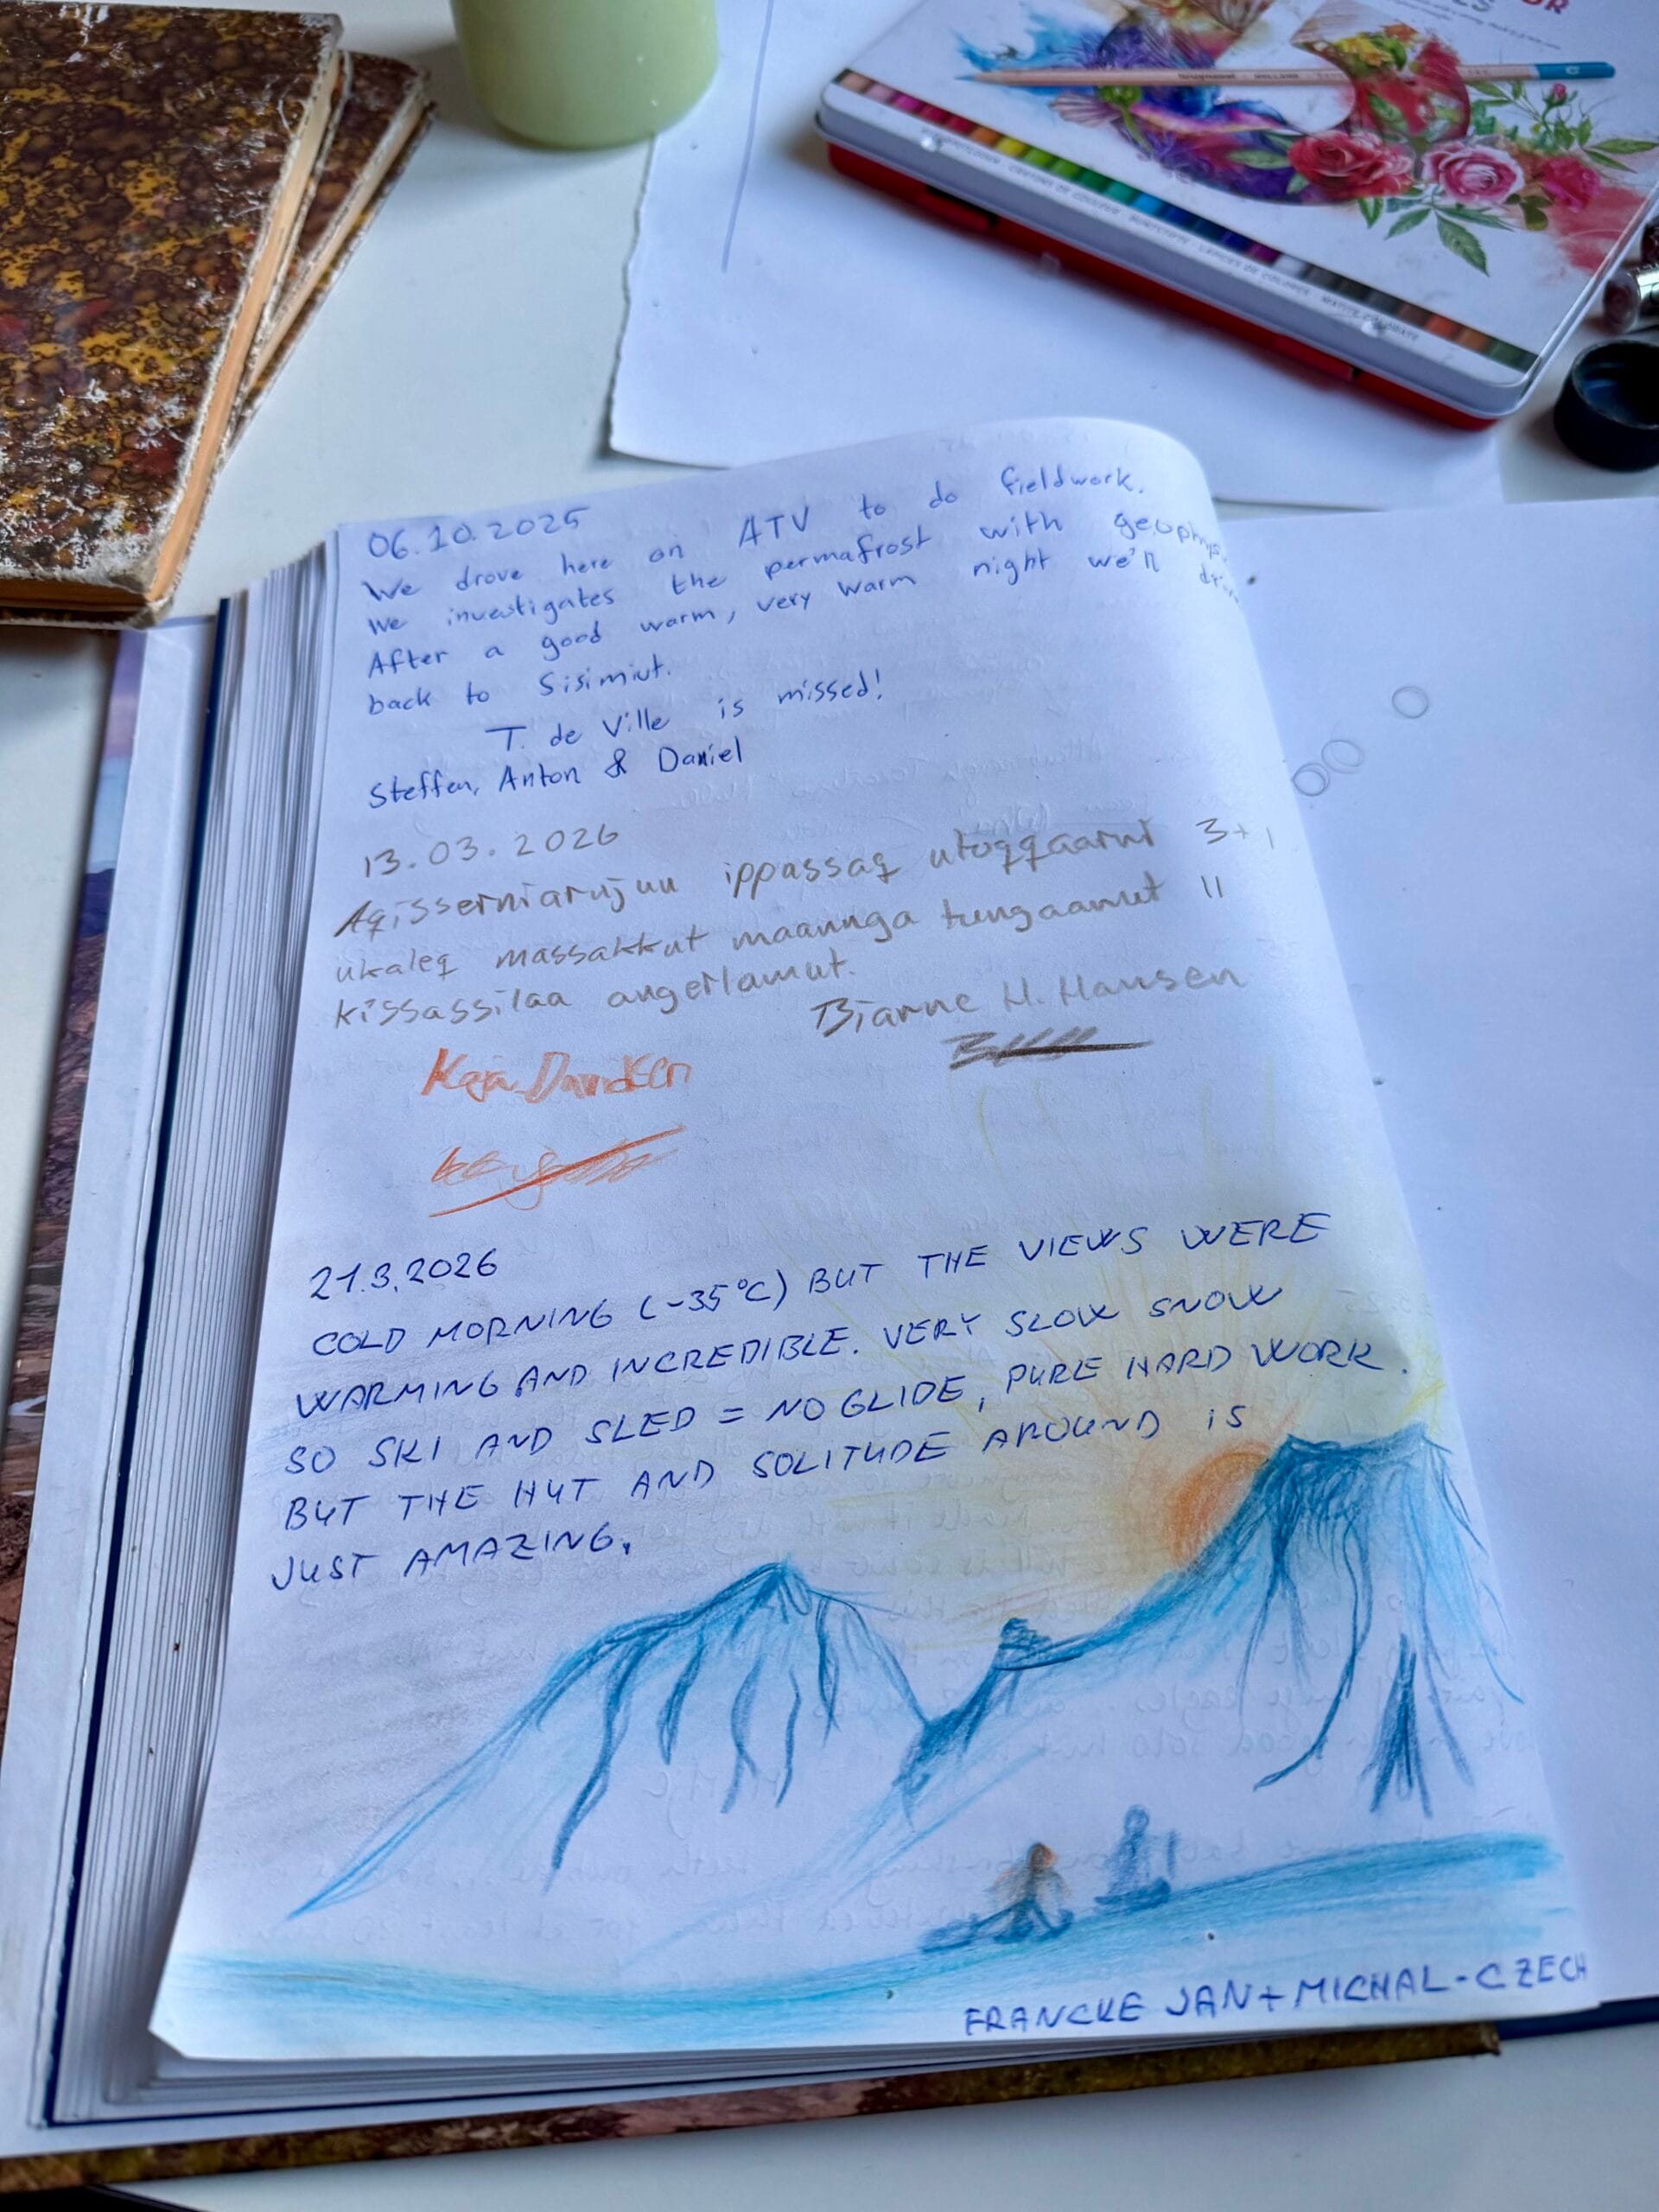 06.10.2025
We drove here on ATV to do fieldwork.
We investigates the permafrost with
After a good warm, very warm night we'll
back to Sisimiut.
T. de Ville is missed!
Steffen, Anton & Daniel
13.03.2026
Aqisserniarujuu ippassaq utoqqaarni 3+1
ukaleq massakkut maannga tungaamut 11
kissassilaa angerlamut.
Bjarne H. Hansen
Kaja Davidsen
21.3.2026
COLD MORNING (-35°C) BUT THE VIEWS WERE
WARMING AND INCREDIBLE. VERY SLOW SNOW
SO SKI AND SLED = NO GLIDE, PURE HARD WORK.
BUT THE HUT AND SOLITUDE AROUND IS
JUST AMAZING.
FRANCKE JAN + MICHAL - CZECH